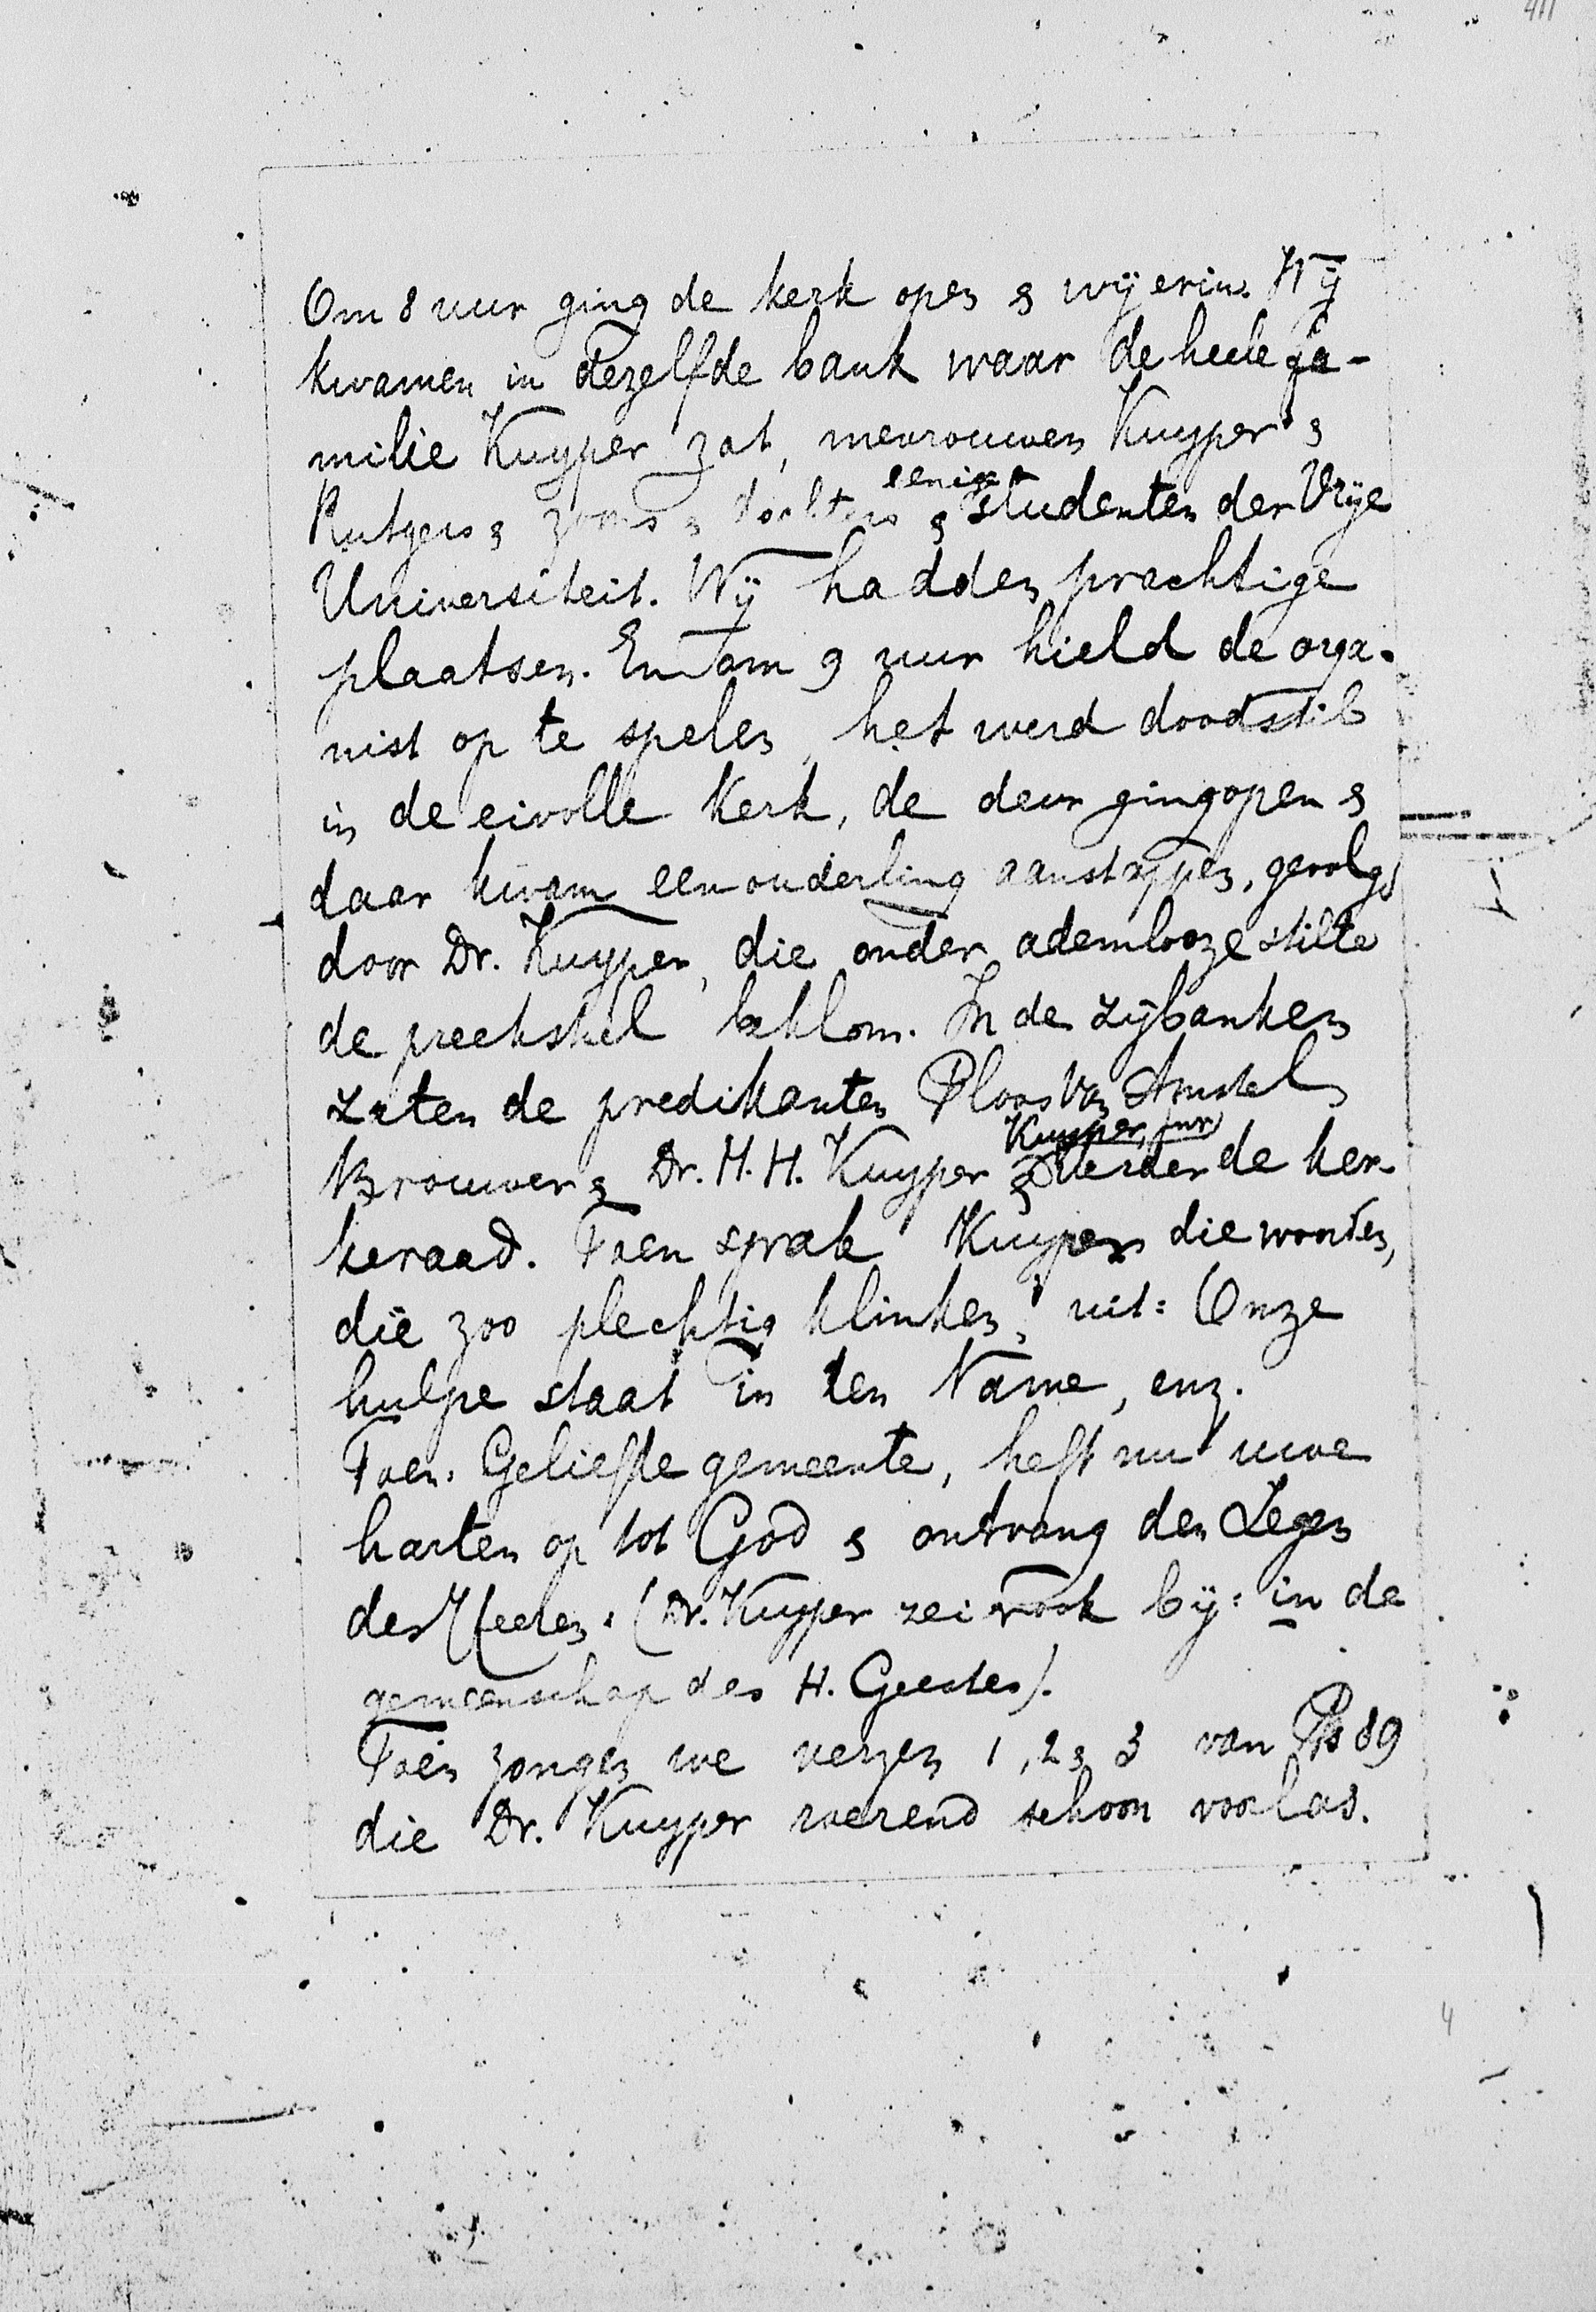 411
Om 8 uur ging de kerk open & wij erin. Wij
kwamen in dezelfde bank waar de heele fa-
milie Kuyper zat, mevrouwen Kuyper &
Rutgers & zoons & dochters & eenige studenten der Vrije
Universiteit. Wij hadden prachtige
plaatsen. En om 9 uur hield de orga-
nist op te spelen, het werd doodstil
in de eivolle kerk, de deur ging open &
daar kwam een ouderling aanstappen, gevolgd
door Dr. Kuyper, die onder ademlooze stilte
de preekstoel beklom. In de zijbanken
zaten de predikanten Ploos van Amstel,
Brouwer & Dr. H. H. Kuyper & Kuyper jnr verder de ker-
keraad. Toen sprak Kuyper die woorden,
die zoo plechtig klinken, uit: Onze
hulpe staat in den Name, enz.
Toen: Geliefde gemeente, heft nu uwe
harten op tot God & ontvang den Zegen
des Heeren. (Dr. Kuyper zei er ook bij: in de
gemeenschap des H. Geestes).
Toen zongen we verzen 1, 2 & 3 van Ps 89
die Dr. Kuyper roerend schoon voorlas.
4